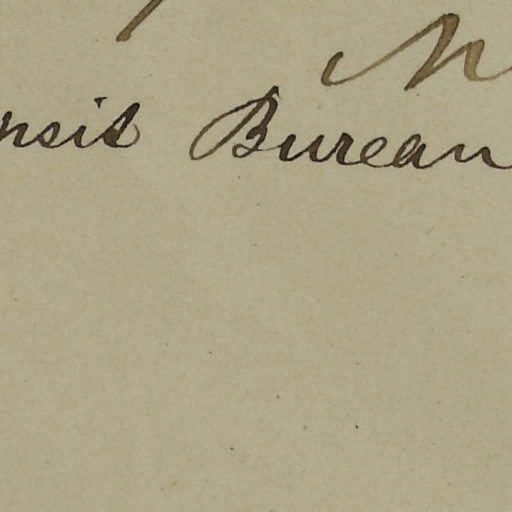 nsit Bureau